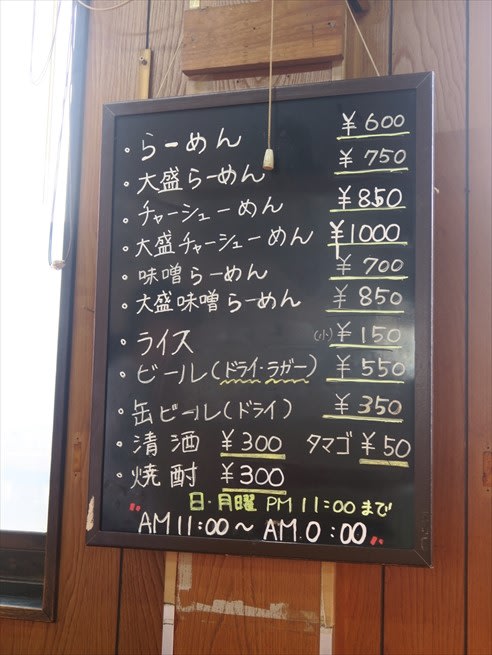 ・らーめん ¥600
・大盛らーめん ¥750
・チャーシューめん ¥850
・大盛チャーシューめん ¥1000
・味噌らーめん ¥700
・大盛味噌らーめん ¥850
・ライス (小)¥150
・ビール(ドライ・ラガー) ¥550
・缶ビール(ドライ) ¥350
・清酒 ¥300 タマゴ ¥50
・焼酎 ¥300
日・月曜 PM 11:00まで
"AM 11:00〜 AM 0:00"